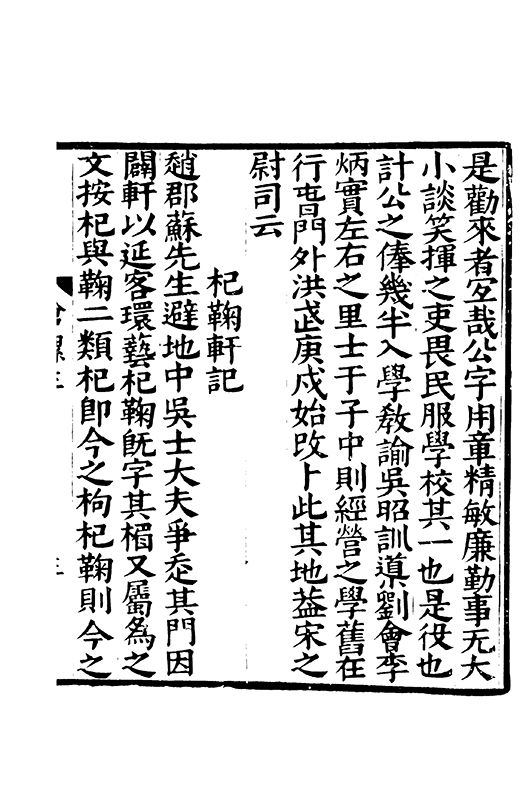 是勸來者宐哉公字用章精敏廉勤事无大
小談笑揮之吏畏民服學校其一也是役也
計公之俸幾半入學敎諭吳昭訓導劉會李
炳實左右之里士于子中則經營之學舊在
行㫺門外洪武庚戍始攺卜此其地葢宋之
尉司云
杞鞠軒記
趙郡蘇先生避地中吳士大夫爭造其門因
闢軒以延客環藝杞鞠旣字其楣又屬爲之
文按杞與鞠二類杞卽今之枸杞鞠則今之